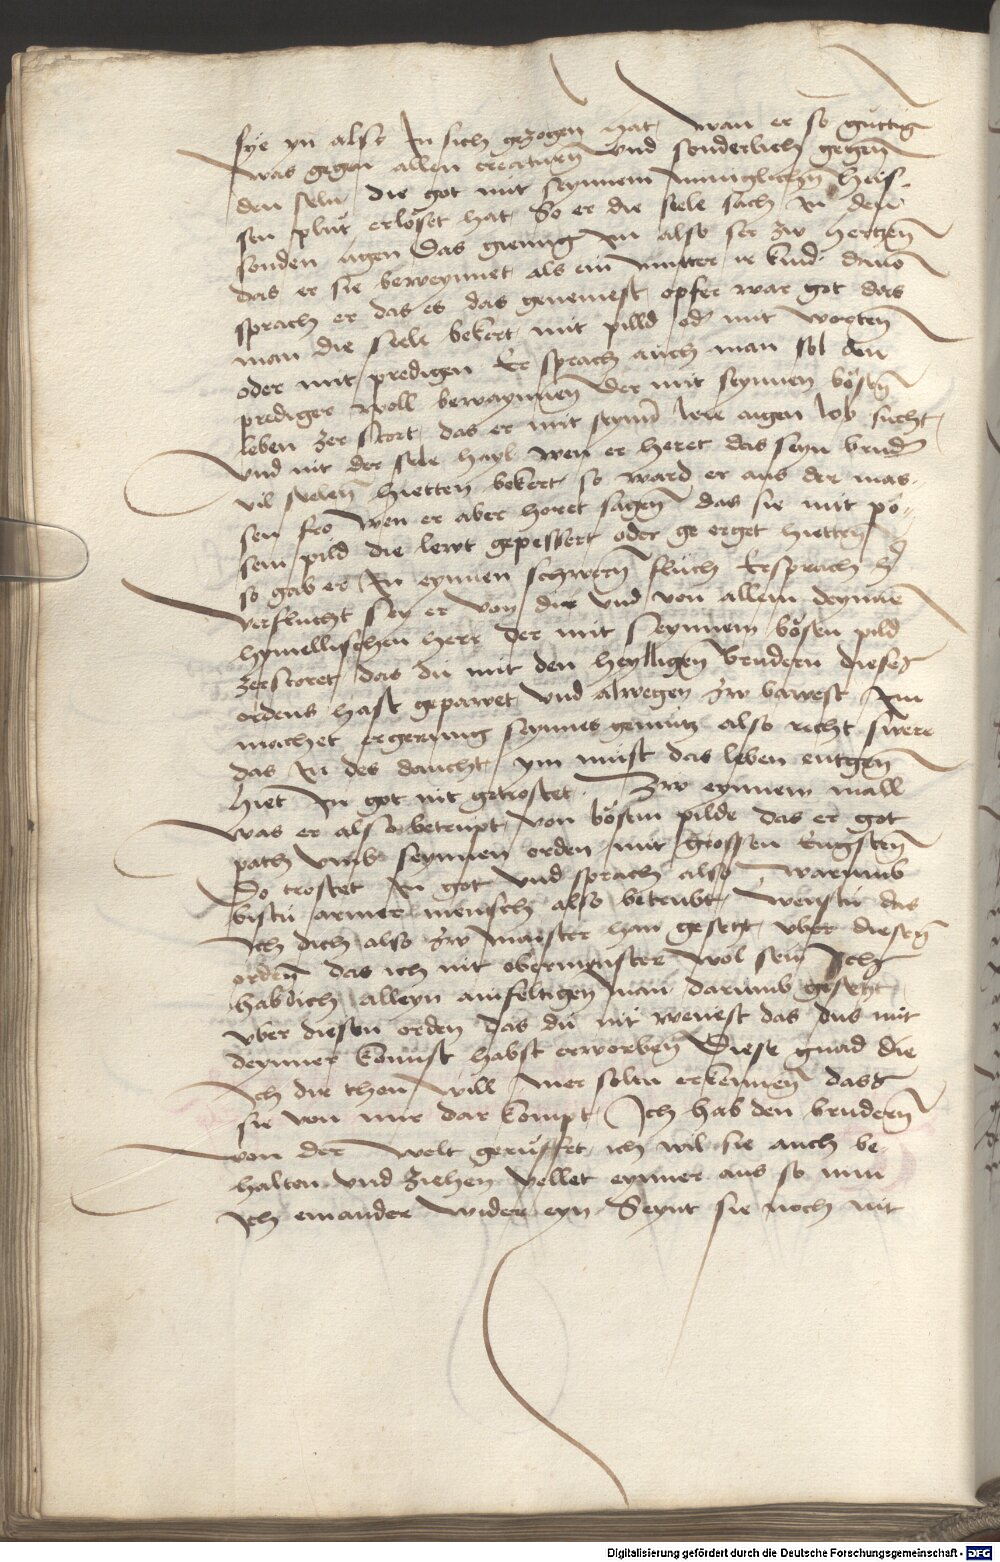 sye yn also In sich gezogen hat, wan er so guttig
was gegen allen creaturen und sonderlich gegen
den seln, die got mit seynnem mynniglichen heis-
sen plut erlöset hat, So er die sele sach In den
sonden ligen Das gienng Im also ser zw hertzen
das er sie beweynnet als ein mutter ir kind davo
sprach er das es das genemest opfer war got das
man die sele bekert mit pilld od mit worten
oder mit predigen Er sprach auch man sol den
prediger woll bewaynnen Der mit seynnen bösen
leben zer stort, das er mit seynn lere aigen lob sucht,
und nit der sele hayl wen er heret das seyn brud
vil selen hietten bekert so ward er aus der mas-
sen fro wen er aber horet sagen das sie mit pö-
sem pild die lewt gepessert oder ge erget hietten
so gab er In eynnen schweren fluch Er sprach h
verflucht sey er von dir und von allem deynne
hymellischen herr der mit seynnem bösen pild
zerstoret das du mit den heylligen brudern dieses
ordens hast gepawet und alwegen zw bawest Im
machet ergerung seynnes gemutz also recht swere
das In des daucht, ym must das leben entgen
hiet In got nit getrostet. Zw eynnem mall
was er also betrupt, von bösem pilde das er got
path umb seynnen orden mit grossen Engsten
Do trostet In got und sprach also, warumb
bistu armer mensch also betrubt, wenstu das
Ich dich also zw maister han gesetzt, uber diesen
orden das ich nit obermynster wol sein Ich
hab dich alleyn ainfeltigen man darumb gesetzt
uber diesen orden das du nit wenest das dus mit
deynner kunnst habst erworben Diese gnad die
Ich die thon will, mer soltu erkennen dass
sie von mir dar kompt, Ich hab den brudern
von der welt geruffet, ich wil sie auch be-
halten und ziehen vellet eynner aus so nim
Ich ein ander wider eyn, Seynt sie noch nit
Digitalisierung gefördert durch die Deutsche Forschungsgemeinschaft - DFG